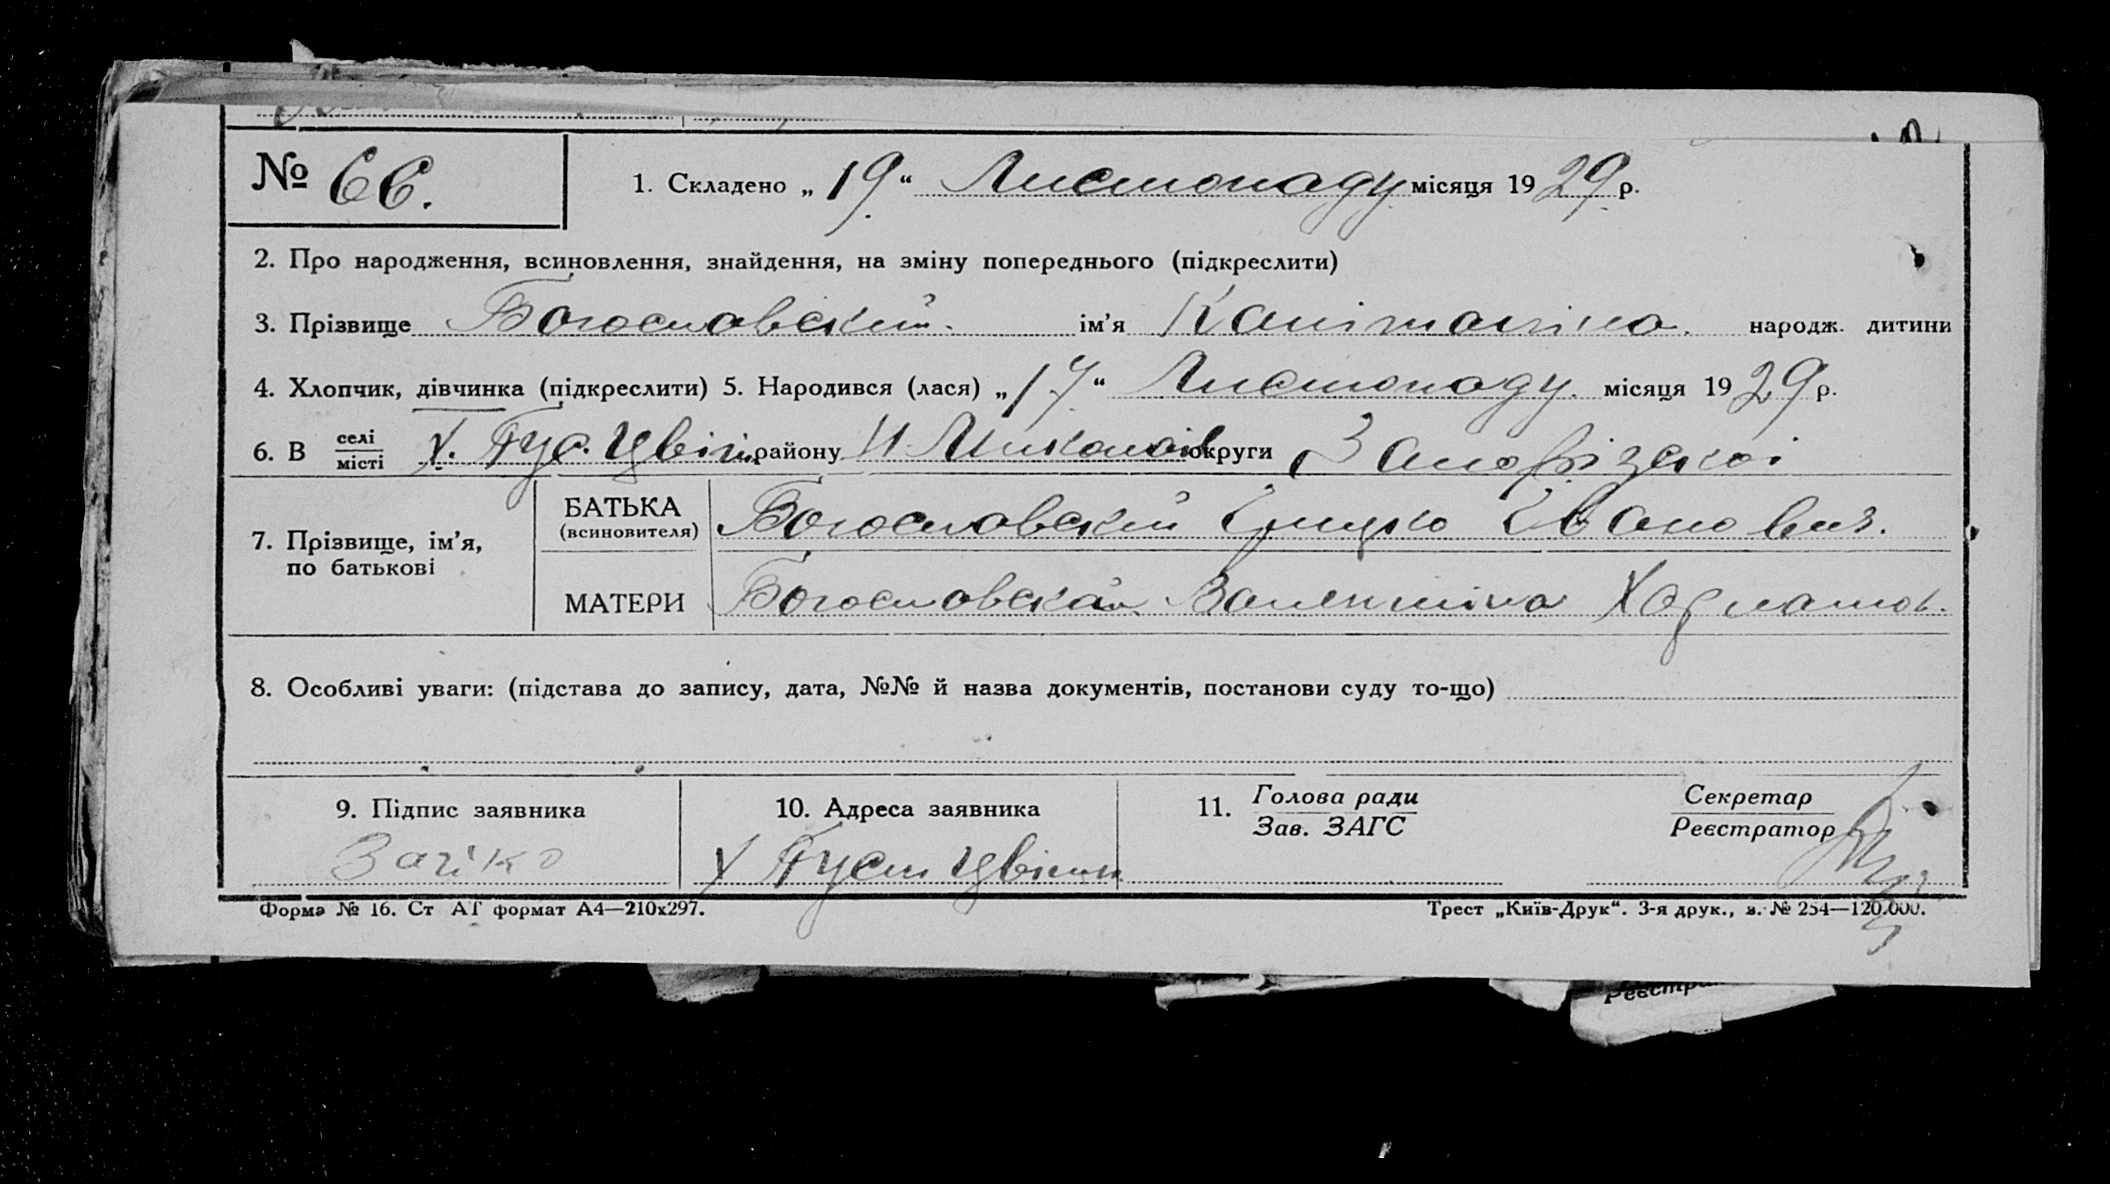 № 66. 1. Складено „19“ Листопаду місяця 1929 р.
2. Про народження, всиновлення, знайдення, на зміну попереднього (підкреслити)
3. Прізвище Богословский. ім’я Капіталіна. народж. дитини
4. Хлопчик, дівчинка (підкреслити) 5. Народився (лася) „17“ Листопаду. місяця 1929 р.
6. В селі місті Х. району Н Миколаїв округи Запорізької
7. Прізвище, ім’я, по батькові
БАТЬКА (всиновителя) Богословский Грицко Іванович.
МАТЕРИ Богословская Валентіна
8. Особливі уваги: (підстава до запису, дата, №№ й назва документів, постанови суду то-що)
9. Підпис заявника 10. Адреса заявника 11. Голова ради Зав. ЗАГС Секретар Реєстратор
Зайко Х
Форма № 16. Ст АТ формат А4—210х297. Трест „Київ-Друк“. 3-я друк., з. № 254—120.000.
Реєстра